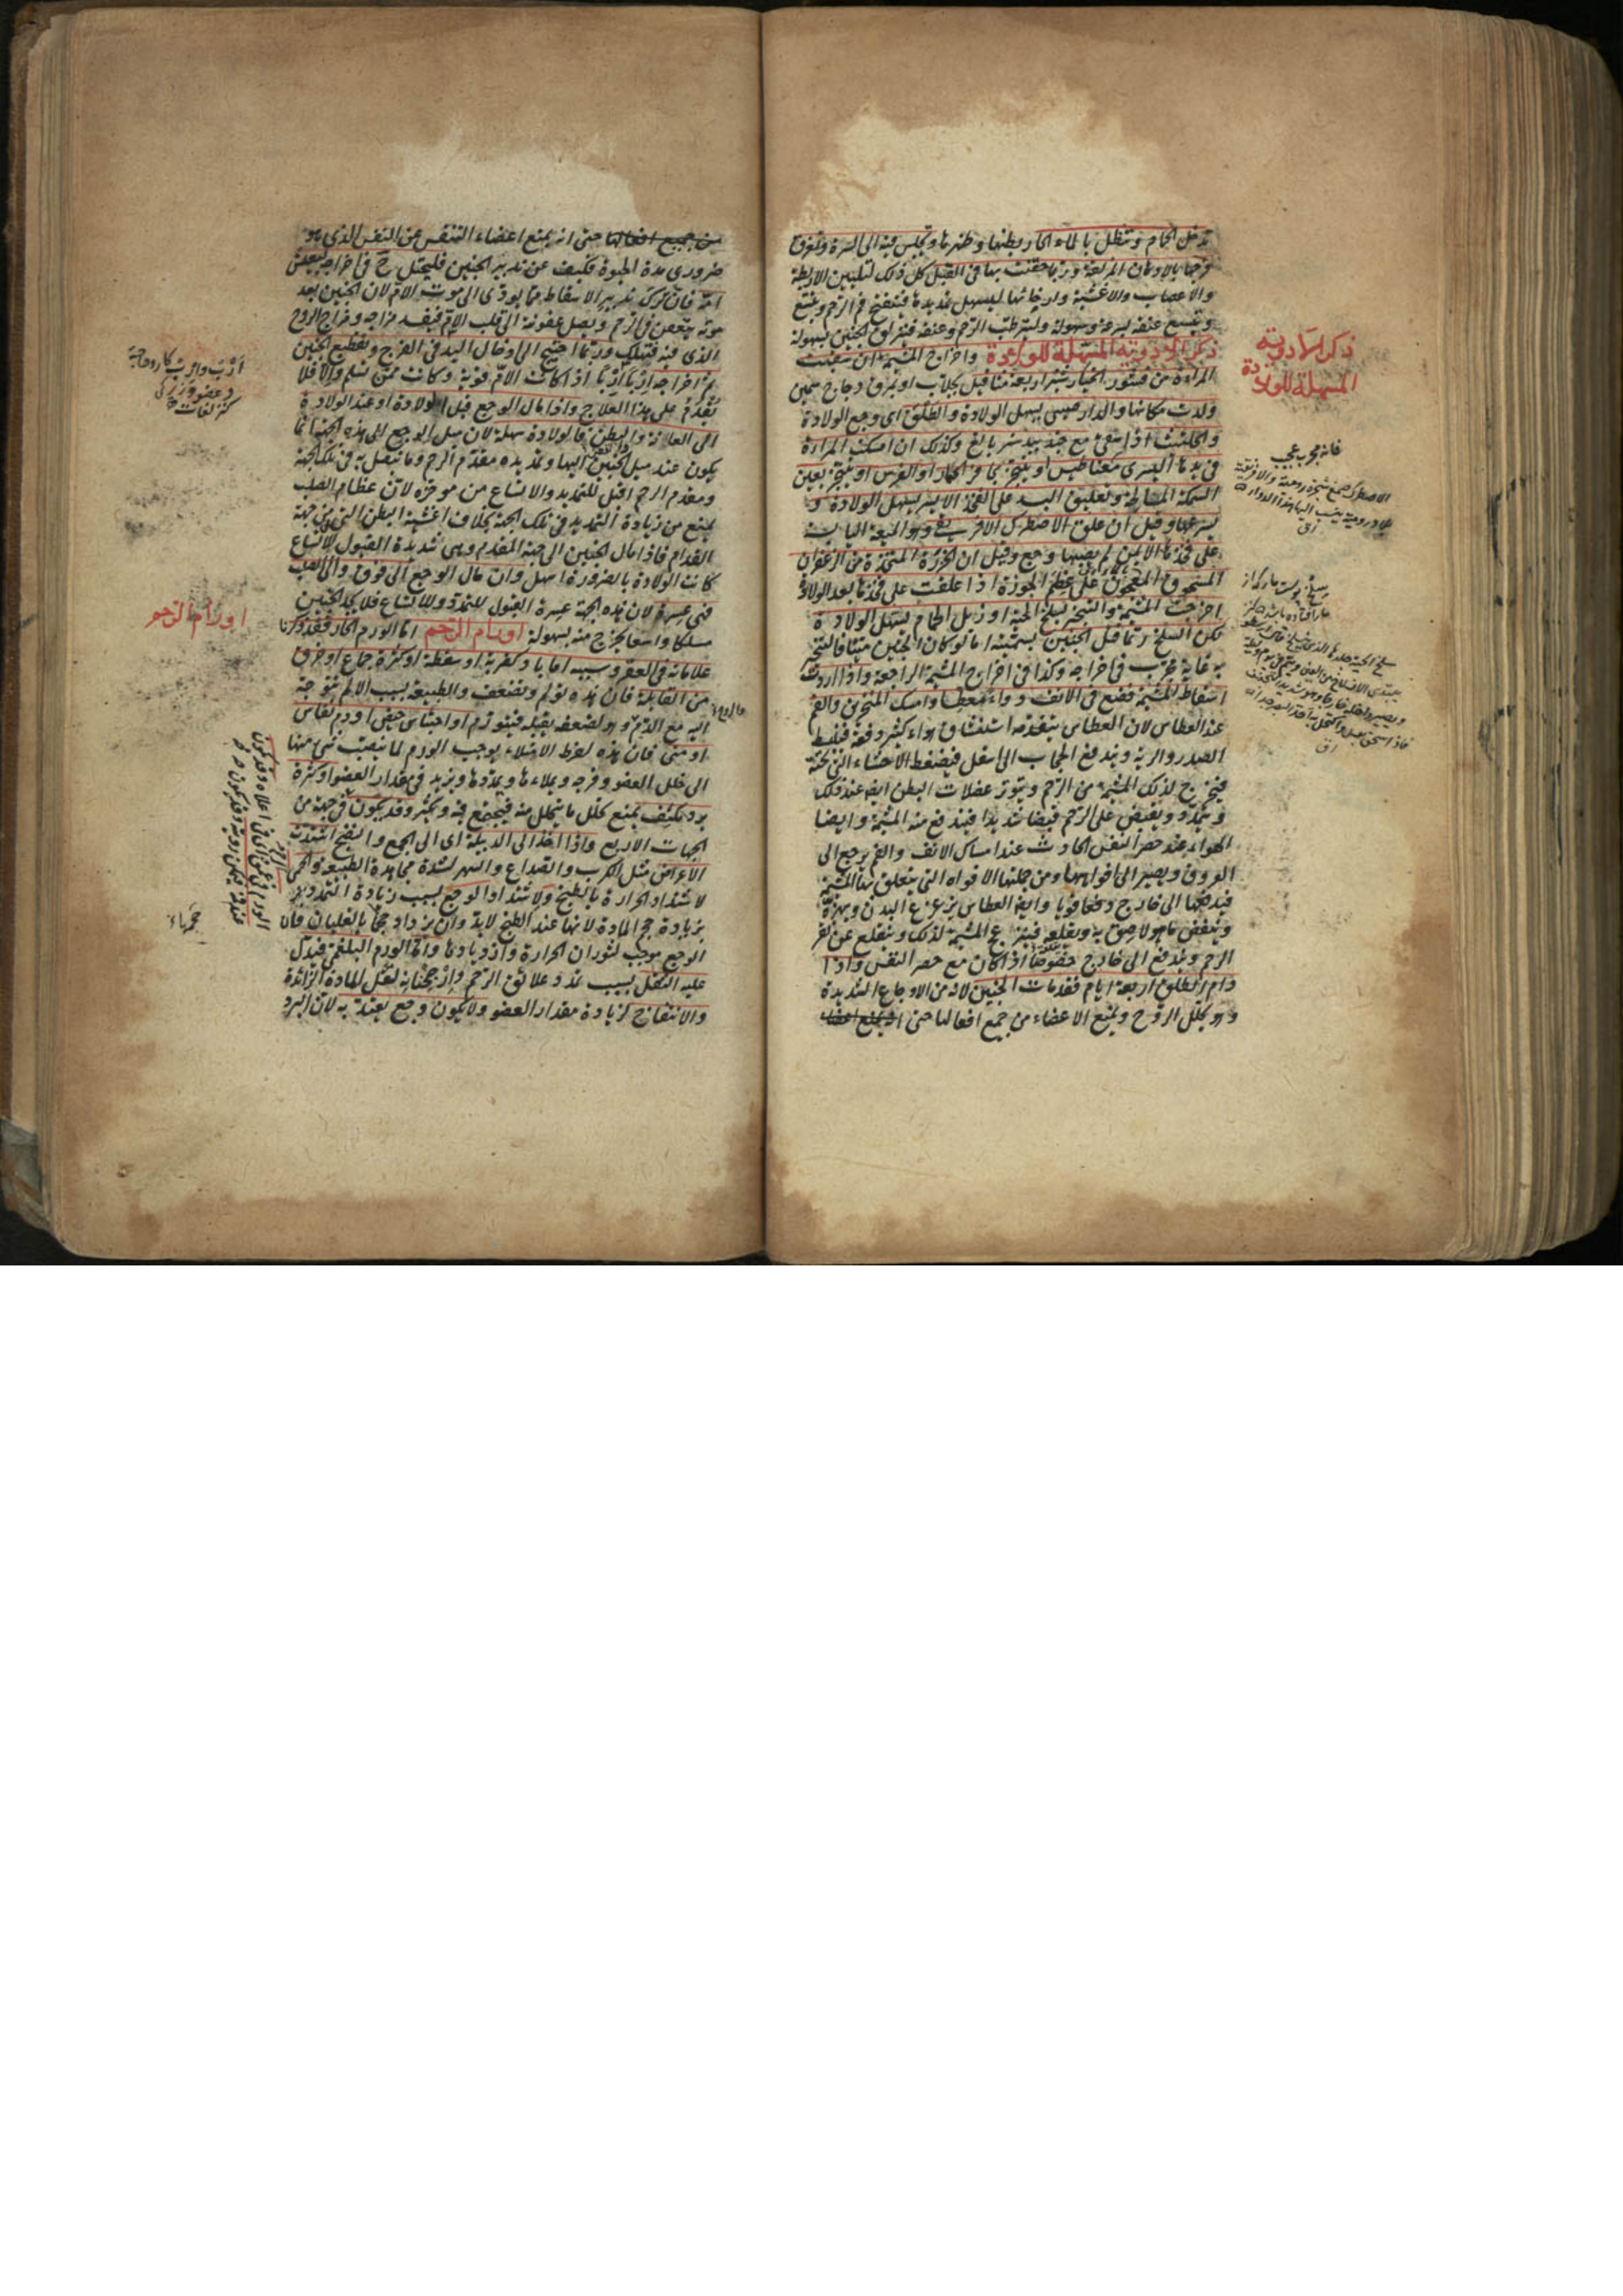 تدخل الحمام وتنطل بالماء الحار بطنها وظهرها وتجلس فيه الى السرة وتمرق
فرجها بالادهان المزلقة وربما حقنت بها فى القبل كل ذلك لتليين الاربطة
والاعصاب والاغشية وارخائها ليسهل تمديدها فينفتح فم الرحم ويتسع
ويتسع عنقه بسرعة وسهولة وليترطب الرحم وعنقه فينزلق الجنين بسهولة
ذكر الادوية المسهلة للولادة واخراج المشيمة ان سقيت
المراة من قشور الخيار شنبر اربعة مثاقيل بجلاب او بمرق دجاج سمين
ولدت مكانها والدارصينى يسهل الولادة والطلق اى وجع الولادة
والحلتيت اذا سقى مع جند بيدستر بالغ وكذلك ان امسكت المراة
فى يدها اليسرى مغناطيس او بتبخر بحافر الحمار او الفرس او بتبخر بعين
السمكة المالحة وتعليق البسد على الفخذ الايسر يسهل الولادة و
يسرعها وقيل ان علق الاصطرك الافريقى وهو الميعة اليابسة
على فخذها الايمن لم يصبها وجع وقيل ان الخرزة المتخذة من الزعفران
المسحوق المعجون على عظم الجوزة اذا علقت على فخذها بعد الولادة
اخرجت المشيمة والتبخر بسلخ الحية او زبل الحمام يسهل الولادة
لكن السلخ ربما قتل الجنين بسميته اما لو كان الجنين ميتا فالتبخير
به غاية مجرب فى اخراجه وكذا فى اخراج المشيمة الراجعة واذا اردت
اسقاط المشيمة فضع فى الانف دواء معطسا وامسك المنخرين والفم
عند العطاس لان العطاس يتقدمه استنشاق هواء كثير دفعة فينبسط
الصدر والرية ويندفع الحجاب الى اسفل فيضغط الاحشاء التى تحته
فيخرج لذلك المشيمة من الرحم ويتوتر عضلات البطن ايضا عند ذلك
ويتمدد ويقبض على الرحم قبضا شديدا فيندفع منه المشيمة وايضا
الهواء عند حصر النفس الحادث عند امساك الانف والفم يرجع الى
العروق ويصير الى افواهها ومن جملتها الافواه التى يتعلق بها المشيمة
فيدفعها الى خارج دفعا قويا وايضا العطاس يزعزع البدن ويهزه
وينفض ما هو لاصق به ويقلعه فيتزعزع المشيمة لذلك وينقلع عن نقر
الرحم ويندفع الى خارج خصوصا اذا كان مع حصر النفس واذا
دام الطلق اربعة ايام فقد مات الجنين لانه من الاوجاع الشديدة
وهو يحلل الروح ويمنع الاعضاء من جميع افعالها حتى
ذكر الادوية
المسهلة للولادة
فانه مجرب عجيب
من جميع افعالها حتى انه يمنع اعضاء التنفس عن النفس الذى هو
ضرورى مدة الحيوة فكيف عن تدبير الجنين فليحتل ح فى اخراجه لتعيش
امه فان ترك تدبير الاسقاط مما يودى الى موت الام لان الجنين بعد
موته يتعفن فى الرحم ويصل عفونته الى قلب الام فيفسد مزاجه ومزاج الروح
الذى فيه فتهلك وربما احتيج الى ادخال اليد فى الفرج وتقطيع الجنين
ثم اخراجه اربا اربا اذا كانت الام قوية وكانت ممن تسلم والا فلا
تقدم على هذا العلاج واذا مال الوجع قبل الولادة او عند الولادة
الى العانة والبطن فالولادة سهلة لان ميل الوجع الى هذه الجهة انما
يكون عند ميل الجنين اليها وتمديده مقدم الرحم وما يتصل به فى تلك الجهة
ومقدم الرحم اقبل للتمديد والاتساع من موخره لان عظام الصلب
يمنع من زيادة التمديد فى تلك الجهة بخلاف اغشية البطن التى من جهة
القدام فاذا مال الجنين الى جهة المقدم وهى شديدة القبول للاتساع
كانت الولادة بالضرورة اسهل وان مال الوجع الى فوق والى الصلب
فهى عسرة لان هذه الجهة عسرة القبول للتمدد وللاتساع فلا يجد الجنين
مسلكا واسعا يخرج منه بسهولة اورام الرحم اما الورم الحار فقد ذكرنا
علاماته فى العقر وسببه اما باد كضربة او سقطة او كثرة جماع او خرق
من القابلة فان هذه تولم وتضعف والطبيعة بسبب الالم تتوجه
اليه مع الدم وهو لضعفه يقبله فيتورم او احتباس حيض او دم نفاس
او منى فان هذه لفرط الامتلاء يوجب الورم لما ينصب شئ منها
الى خلل العضو وفرجه ويملاءها ويمددها ويزيد فى مقدار العضو او كثرة
برد مكثف يمنع تحلل ما يتحلل منه فيجتمع فيه ويكثر وقد يكون فى جهة من
الجهات الاربع واذا اخذ الى الدبيلة اى الى الجمع والنضج اشتدت
الاعراض مثل الكرب والصداع والسهر لشدة مجاهدة الطبيعة والحمى
لاشتداد الحرارة بالطبخ ولاشتداد الوجع بسبب زيادة التمدد
بزيادة حجم المادة لانها عند الطبخ لابد وان يزداد حجما بالغليان فان
الوجع موجب لثوران الحرارة وازديادها واما الورم البلغمى فيدل
عليه الثقل بسبب تمدد علائق الرحم لثقل المادة الزائدة
والانتفاخ لزيادة مقدار العضو ولا يكون وجع يعتد به لان البرد
اورام الرحم